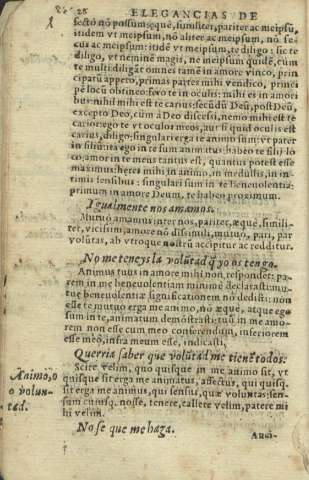 28 ELEGANCIAS DE
fecto nõ possum: equè, similiter, pariter ac meipsũ,
itidem vt meipsum, nõ aliter ac meipsum, nõ se-
cus ac meipsum: itidé vt meipsum, te diligo: sic te
diligo, vt neminē magis, ne meipsum quidē, cùm
te multi diligāt omnes tamē in amore vinco, prin
cipatũ appeto, primas partes mihi vendico, princi
pē locũ obtineo: fero te in oculis: mihi es in amori
bus: nihil mihi est te carius: secũdũ Deũ, post Deũ,
excepto Deo, cùm à Deo discessi, nemo mihi est te
carior: ego te vt oculos meos, aut si quid oculis est
carius, diligo: singulari erga te animo sum: vt pater
in filiũ: ita ego in te sum animatus: habeo te filij lo
co, amor in te meus tantus est, quantus potest esse
maximus: hæres mihi in animo, in medullis, in in-
timis sensibus: singulari sum in te beneuolentia:
primum in amore Deum, te habeo proximum.
Igualmente nos amamos.
Mutuò amamus inter nos, pariter, æque, simili-
ter, vicissim, amore nõ dissimili, mutuò, pari, par
volũtas, ab vtroque nostrũ accipitur ac redditur.
No me teneys la volũtad q̃ yo os tengo.
Animus tuus in amore mihi non respondet: pa-
rem in me beneuolentiam minimè declarasti: mu-
tuæ beneuolentiæ significationem nõ dedisti: non
esse te mutuo erga me animo, nō æque, atque ego
sum in te, animatum demõstrasti: tuũ in me amo-
rem non esse cum meo conferendum, inferiorem
esse meo, infra meum esse, indicasti,
Querria saber que volũtad me tienē todos.
Animo, ò
o volun-
tad.
Scire velim, quo quisque in me animo sit, vt
quisque sit erga me animatus, affectus, qui quisq́;
sit erga me animus, qui sensus, quæ voluntas: sen-
sum cuiusq; nosse, tenere, callere velim, patere mi
hi velim.
No se que me haga.
Animi-